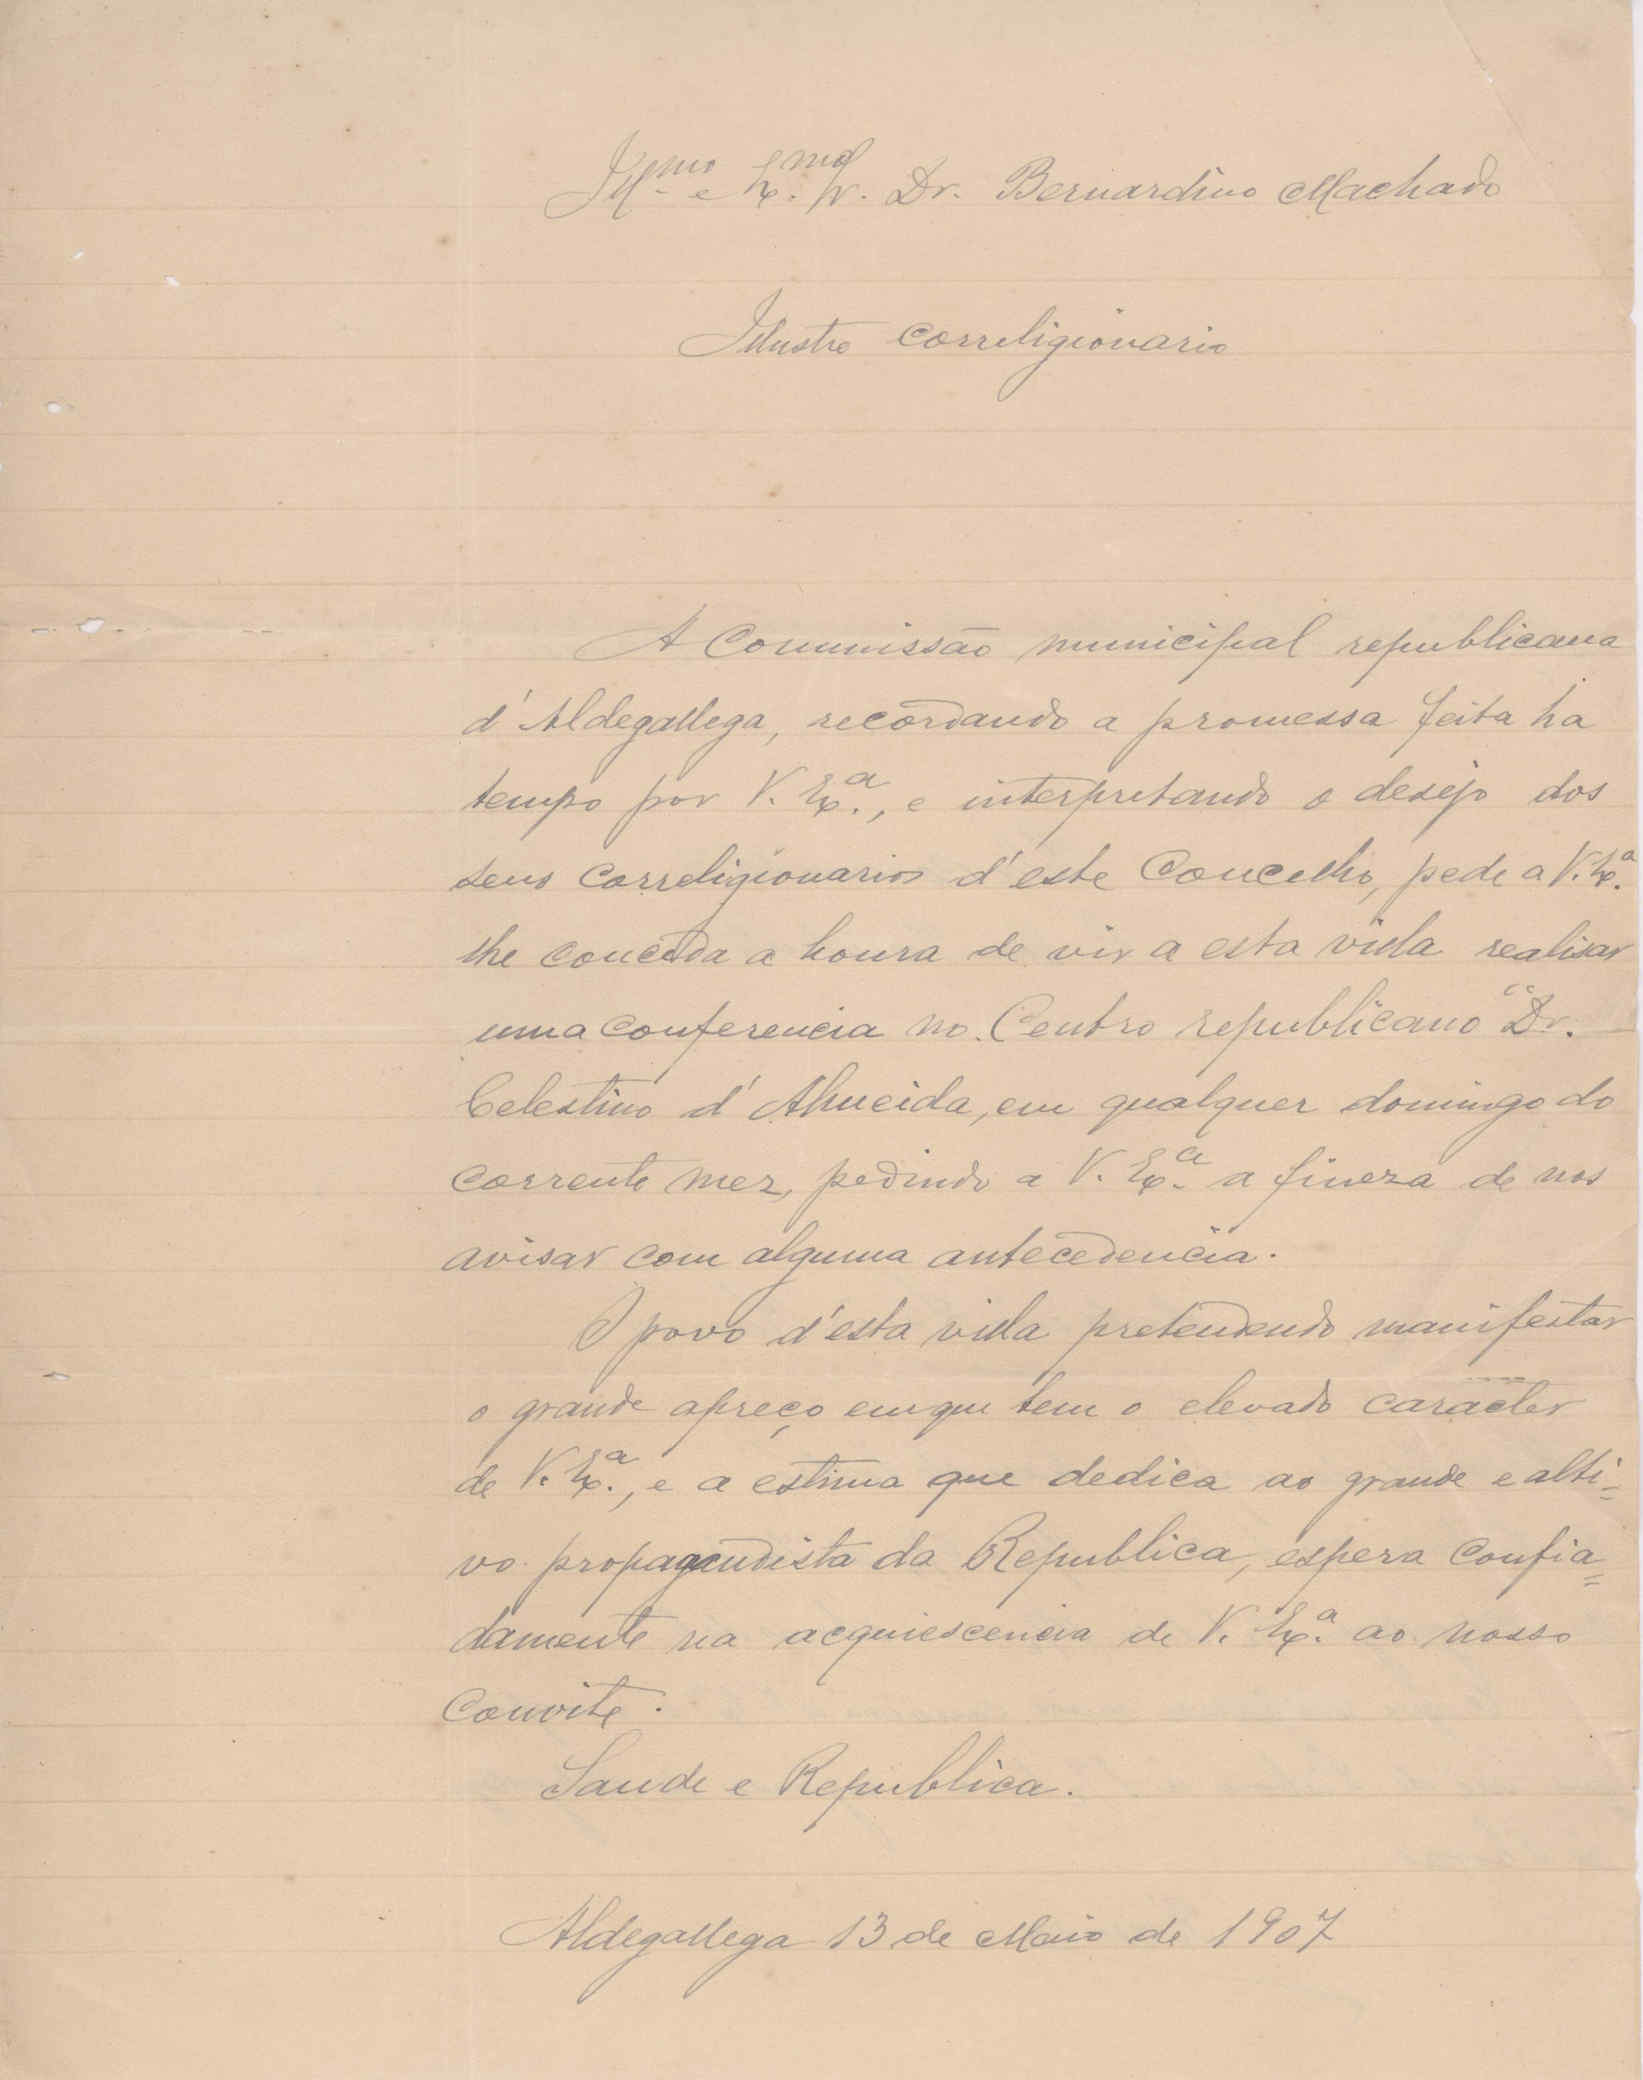 Ill.mo e Ex.mo Sr. Dr. Bernardino Machado
Illustre Correligionario
A Commissão municipal republicana
d'Aldegallega, recordando a promessa feita ha
tempo por V. Ex.a, e interpretando o desejo dos
seus Correligionarios d'este Concelho, pede a V. Ex.a
lhe conceda a honra de vir a esta villa realisar
uma Conferencia no Centro republicano "Dr.
Celestino d'Almeida, em qualquer domingo do
corrente mez, pedindo a V. Ex.a a fineza de nos
avisar com alguma antecedencia.
O povo d'esta villa pretendendo manifestar
o grande apreço em que tem o elevado caracter
de V. Ex.a, e a estima que dedica ao grande e alti=
vo propagandista da Republica, espera Confia=
damente na acquiescencia de V. Ex.a ao nosso
Convite.
Saude e Republica.
Aldegallega 13 de Maio de 1907